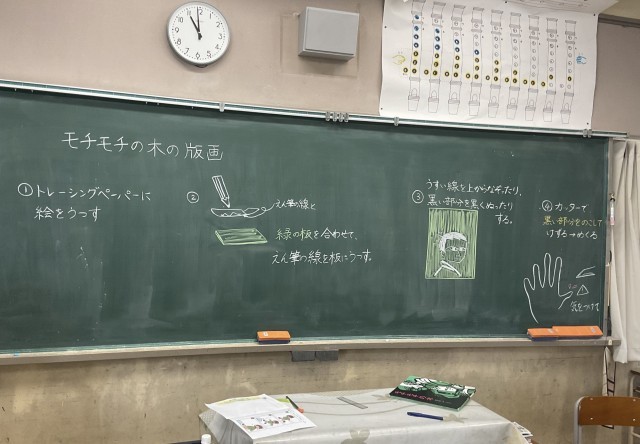 モチモチの木の版画
① トレーシングペーパーに
絵をうつす
②
えん筆の線と
緑の板を合わせて、
えん筆の線を板にうつす。
③
うすい線を上からなぞったり、
黒い部分を黒くぬったり
する。
④ カッターで
黒い部分をのこして
けずる→めくる
気をつけて